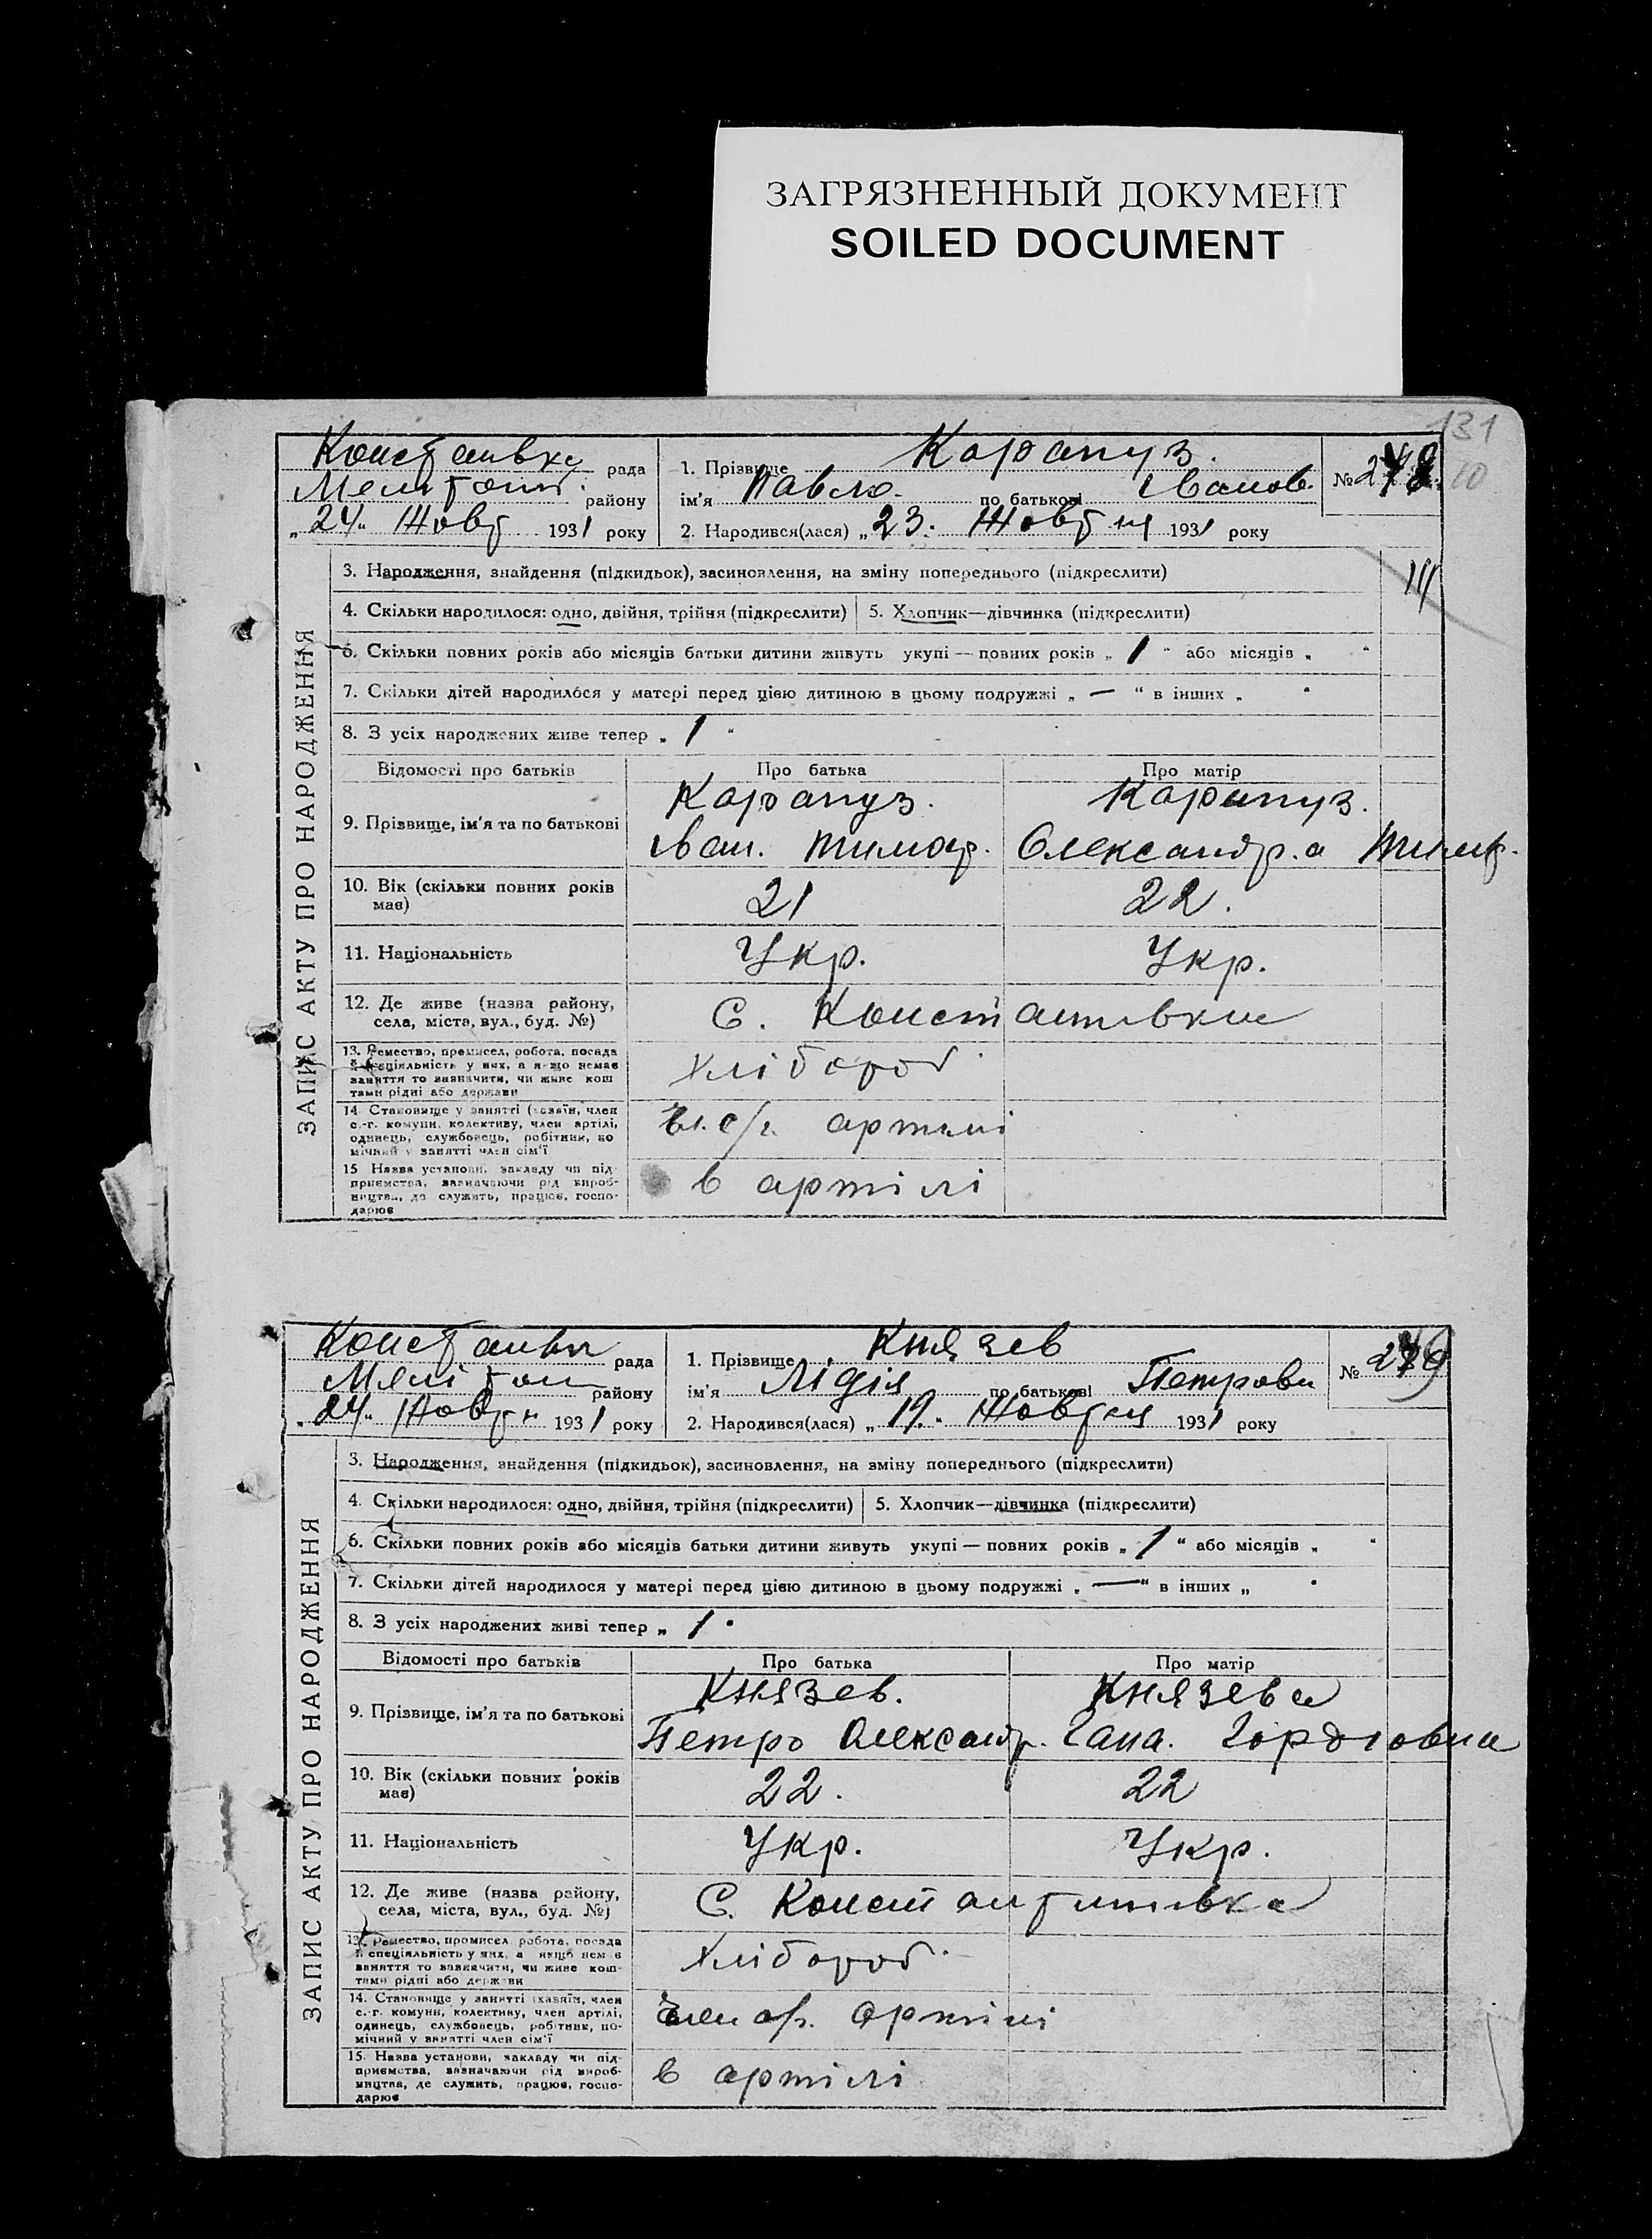 ЗАГРЯЗНЕННЫЙ ДОКУМЕНТ
SOILED DOCUMENT
131
10
ЗАПИС АКТУ ПРО НАРОДЖЕННЯ
рада
району
„24„ Жовт 1931 року
1. Прізвище Карапуз.
ім'я Павло. по батькові Іванов.
2. Народився(лася) „23. Жовтня 1931 року
№
3. Народження, знайдення (підкидьок), засиновлення, на зміну попереднього (підкреслити)
4. Скільки народилося: одно, двійня, трійня (підкреслити)
5. Хлопчик—дівчинка (підкреслити)
6. Скільки повних років або місяців батьки дитини живуть укупі — повних років „ 1 “ або місяців „ “
7. Скільки дітей народилося у матері перед цією дитиною в цьому подружжі „ — “ в інших „ “
8. З усіх народжених живе тепер „ 1 “
Відомості про батьків
Про батька
Про матір
9. Прізвище, ім'я та по батькові
Карапуз.
Іван. Тимоф.
Карапуз.
Олександр.а
10. Вік (скільки повних років
має)
21
22.
11. Національність
Укр.
Укр.
12. Де живе (назва району,
села, міста, вул., буд. №)
С.
13. Ремество, промисел, робота, посада
й спеціяльність у них, а якщо немає
заняття то зазначити, чи живе кош
тами рідні або держави
Хлібороб
14. Становище у занятті (хазяїн, член
с.-г. комуни, колективу, член артілі,
одинець, службовець, робітник, по
мічний у занятті член сім'ї
Чл. с/г. артілі
15. Назва установи, закладу чи під-
приємства, зазначаючи рід вироб-
ництва, де служить, працює, госпо-
дарює
в артілі
ЗАПИС АКТУ ПРО НАРОДЖЕННЯ
рада
району
„24„ Жовтн 1931 року
1. Прізвище Князев
ім'я Лідія по батькові Петровн
2. Народився(лася) „19.. Жовтня 1931 року
№
3. Народження, знайдення (підкидьок), засиновлення, на зміну попереднього (підкреслити)
4. Скільки народилося: одно, двійня, трійня (підкреслити)
5. Хлопчик—дівчинка (підкреслити)
6. Скільки повних років або місяців батьки дитини живуть укупі — повних років „ 1 “ або місяців „ “
7. Скільки дітей народилося у матері перед цією дитиною в цьому подружжі „ — “ в інших „ “
8. З усіх народжених живі тепер „ 1 “
Відомості про батьків
Про батька
Про матір
9. Прізвище, ім'я та по батькові
Князев.
Петро Олександр.
Князева
Гана. Гордіовна
10. Вік (скільки повних років
має)
22.
22
11. Національність
Укр.
Укр.
12. Де живе (назва району,
села, міста, вул., буд. №)
С.
13. Ремество, промисел, робота, посада
й спеціяльність у них, а якщо немає
заняття то зазначити, чи живе кош-
тами рідні або держави
Хлібороб.
14. Становище у занятті (хазяїн, член
с.-г. комуни, колективу, член артілі,
одинець, службовець, робітник, по-
мічний у занятті член сім'ї
артілі
15. Назва установи, закладу чи під-
приємства, зазначаючи рід вироб-
ництва, де служить, працює, госпо-
дарює
в артілі